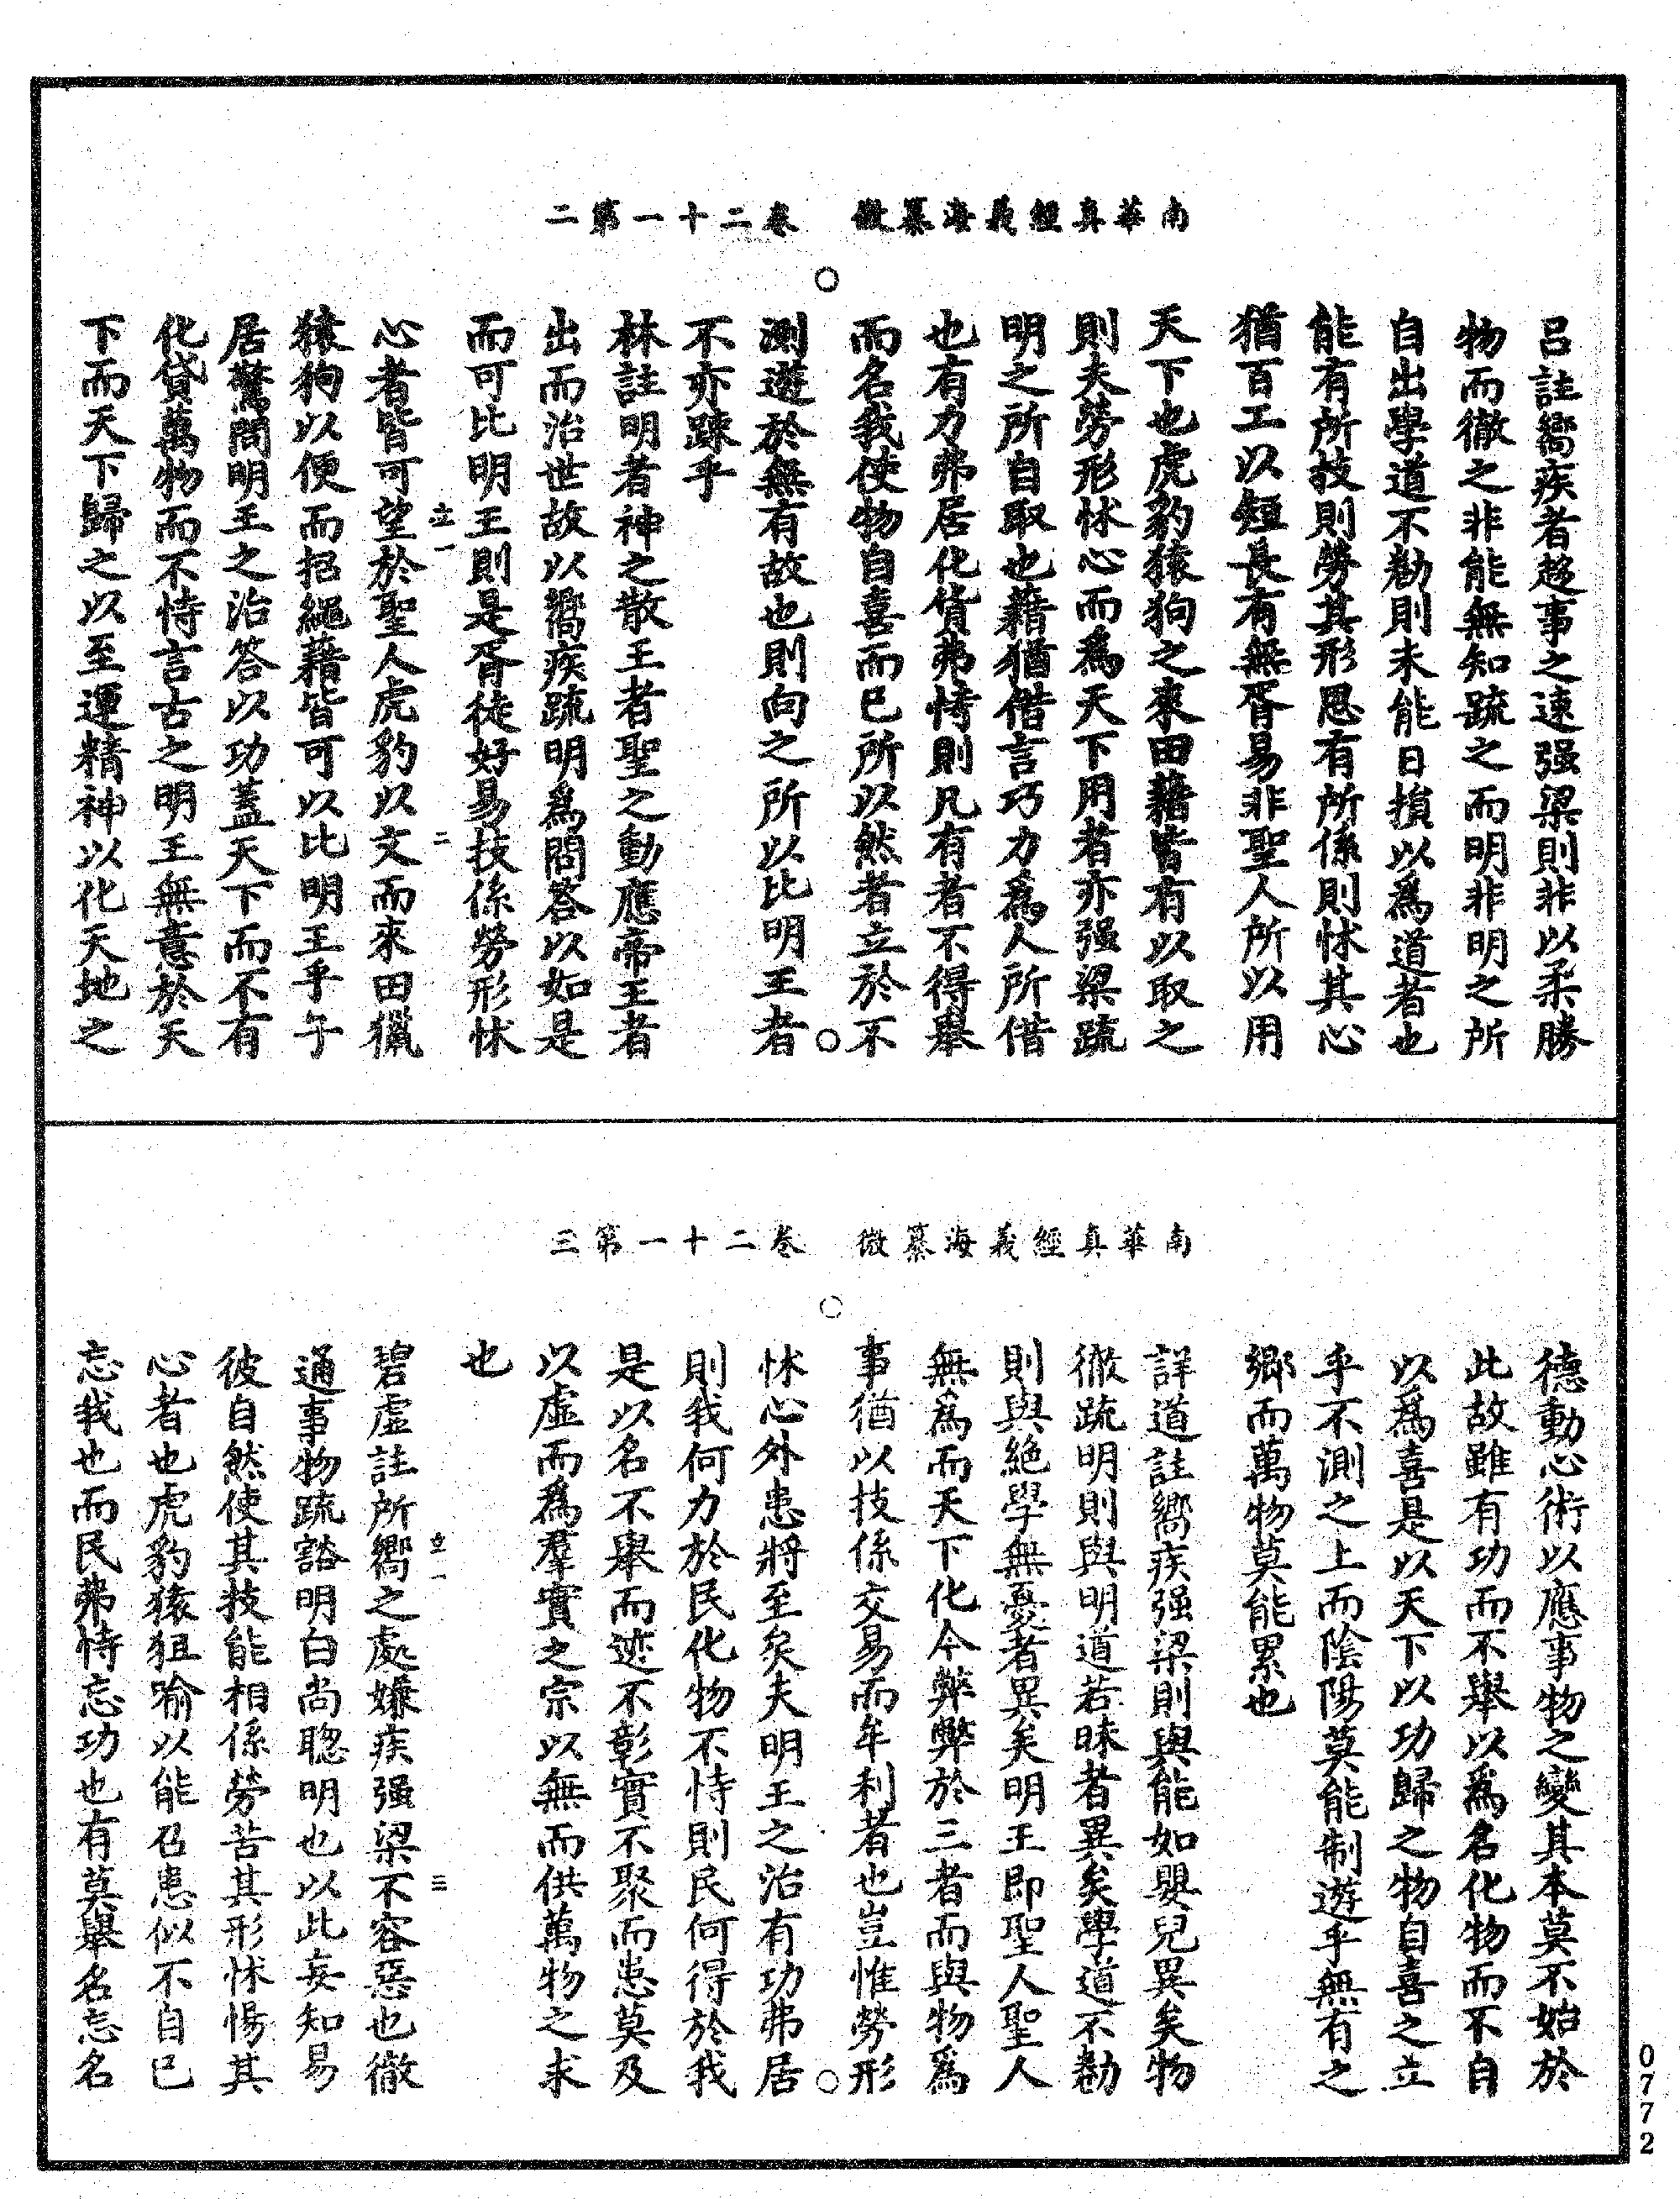 南華真經義海纂微　卷二十一第二
呂註嚮疾者趍事之速强梁則非以柔勝
物而徹之非能無知疏之而明非明之所
自出學道不勌則未能日損以爲道者也
能有所技則勞其形思有所係則怵其心
猶百工以短長有無胥易非聖人所以用
天下也虎豹猿狗之來田藉皆有以取之
則夫勞形怵心而爲天下用者亦强梁疏
明之所自取也藉猶借言巧力爲人所借
也有力弗居化貸弗恃則凡有者不得舉
而名我使物自喜而已所以然者立於不
測遊於無有故也則向之所以比明王者
不亦踈乎
林註明者神之散王者聖之動應帝王者
出而治世故以嚮疾疏明爲問答以如是
而可比明王則是胥徒好易技係勞形怵
立一
二
心者皆可望於聖人虎豹以文而來田獵
猿狗以便而招繩藉皆可以比明王乎子
居驚問明王之治答以功蓋天下而不有
化貸萬物而不恃言古之明王無意於天
下而天下歸之以至運精神以化天地之
南華真經義海纂微　卷二十一第三
德動心術以應事物之變其本莫不始於
此故雖有功而不舉以爲名化物而不自
以爲喜是以天下以功歸之物自喜之立
乎不測之上而陰陽莫能制遊乎無有之
鄉而萬物莫能累也
詳道註嚮疾强梁則與能如嬰兒異矣物
徹疏明則與明道若昧者異矣學道不勌
則與絶學無憂者異矣明王即聖人聖人
無爲而天下化今弊弊於三者而與物爲
事猶以技係交易而牟利者也豈惟勞形
怵心外患將至矣夫明王之治有功弗居
則我何力於民化物不恃則民何得於我
是以名不舉而迹不彰實不聚而患莫及
以虛而爲羣實之宗以無而供萬物之求
也
立一
三
碧虛註所嚮之處嫌疾强梁不容惡也徹
通事物疏豁明白尚聦明也以此妄知易
彼自然使其技能相係勞苦其形怵惕其
心者也虎豹猿狙喻以能召患似不自已
忘我也而民弗恃忘功也有莫舉名忘名
0772